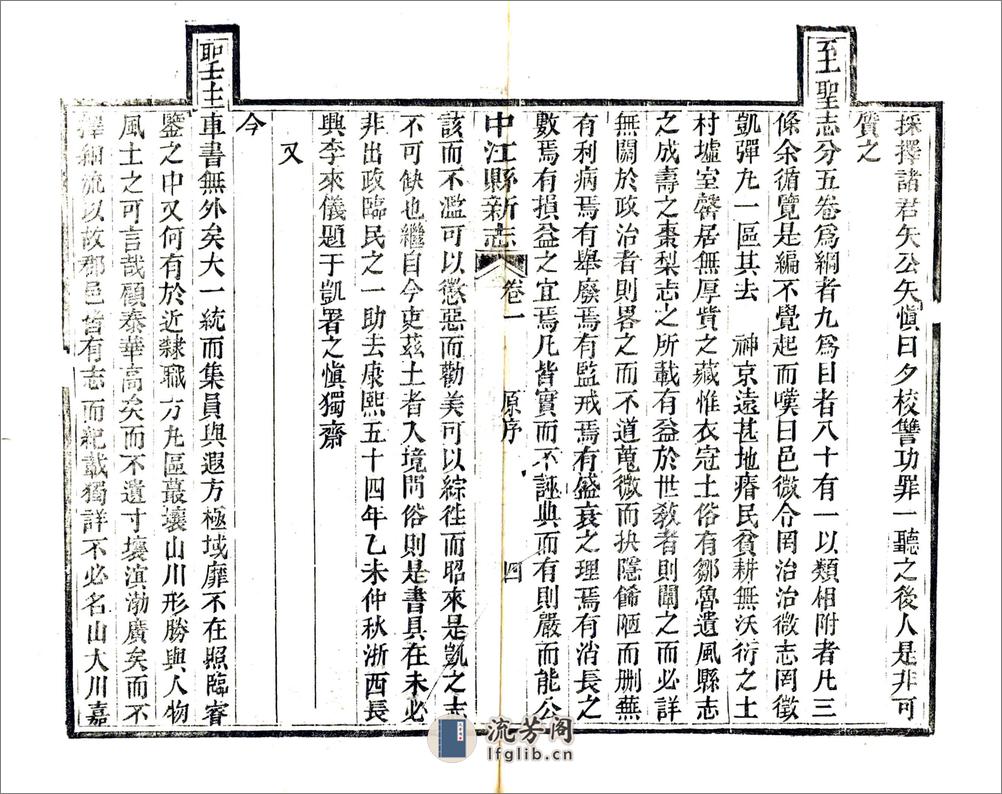 採擇諸君矢公矢慎日夕校讐功罪一聽之後人是非可
質之
至聖志分五卷爲綱者九爲目者八十有一以類相附者凡三
條余循覽是編不覺起而嘆曰邑微令罔治治微志罔徵
凱彈九一區其去　神京遠甚地瘠民貧耕無沃衍之土
村墟室罄居無厚貲之藏惟衣冠土俗有鄒魯遺風縣志
之成壽之棗梨志之所載有益於世敎者則闡之而必詳
無關於政治者則畧之而不道蒐微而抉隱篩陋而删蕪
有利病焉有舉廢焉有監戒焉有盛衰之理焉有消長之
數焉有損益之宜焉凡皆實而不誣典而有則嚴而能公
中江縣新志　卷一　原序　四
該而不濫可以懲惡而勸美可以綜往而昭來是凱之志
不可缺也繼自今吏茲土者入境問俗則是書具在未必
非出政臨民之一助去康熙五十四年乙未仲秋浙西長
興李來儀題于凱署之愼獨齋
又
今
聖主車書無外矣大一統而集員與遐方極域靡不在照臨睿
鑒之中又何有於近隸職方九區蕞壤山川形勝與人物
風土之可言哉顧泰華高矣而不遺寸壤滇渤廣矣而不
擇細流以故郡邑皆有志而紀載獨詳不必名山大川嘉
流芳阁
lfglib.cn